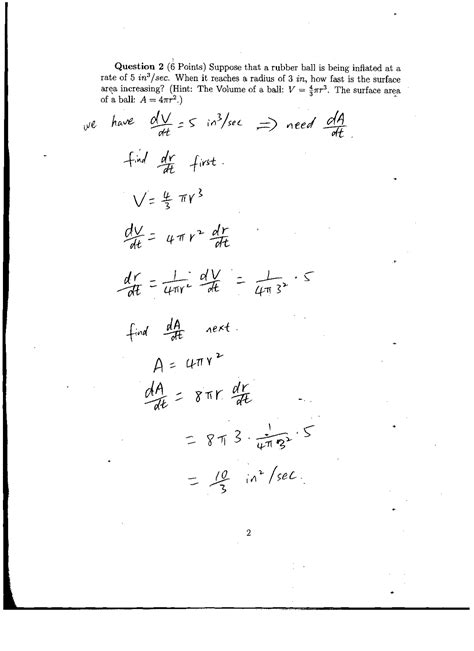 Question 2 (6 Points) Suppose that a rubber ball is being inflated at a
rate of 5 in³/sec. When it reaches a radius of 3 in, how fast is the surface
area increasing? (Hint: The Volume of a ball: V = 4/3πr³. The surface area
of a ball: A = 4πr².)
we have dV/dt = 5 in³/sec ⇒ need dA/dt
find dr/dt first.
V = 4/3 πr³
dV/dt = 4πr² dr/dt
dr/dt = 1/4πr² · dV/dt = 1/4π3² · 5
find dA/dt next.
A = 4πr²
dA/dt = 8πr dr/dt
= 8π3 · 1/4π3² · 5
= 10/3 in²/sec.
2